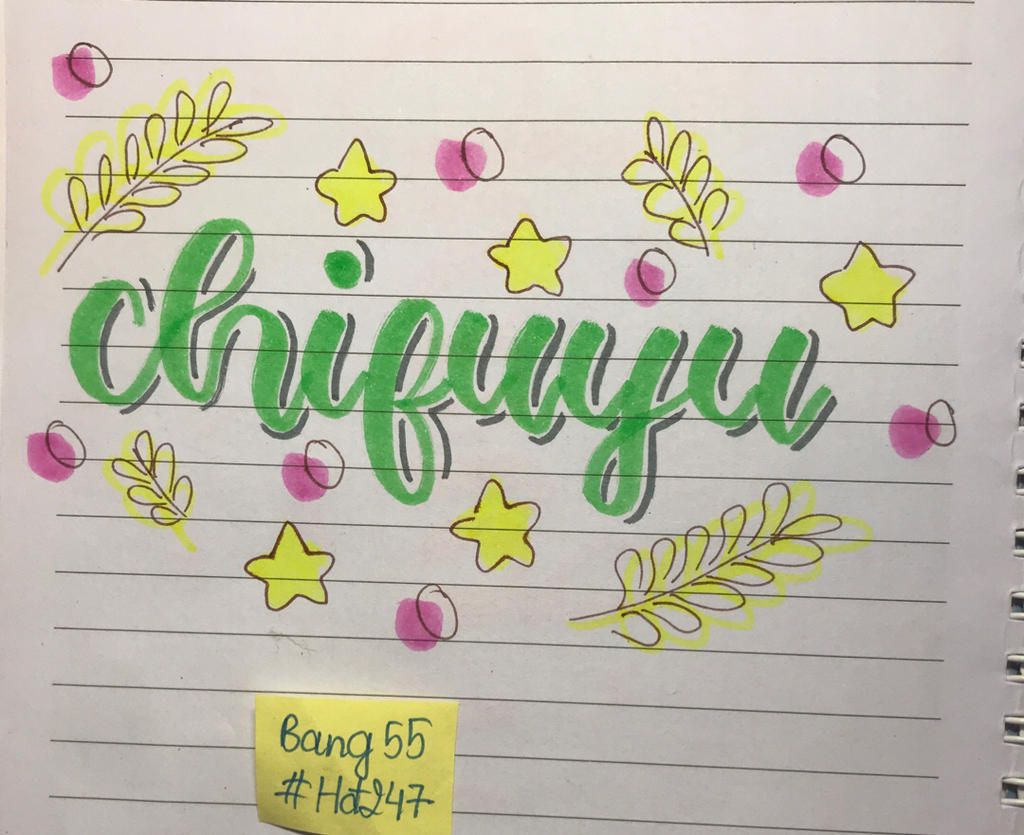 chifuyu
Bang 55
#Hot247